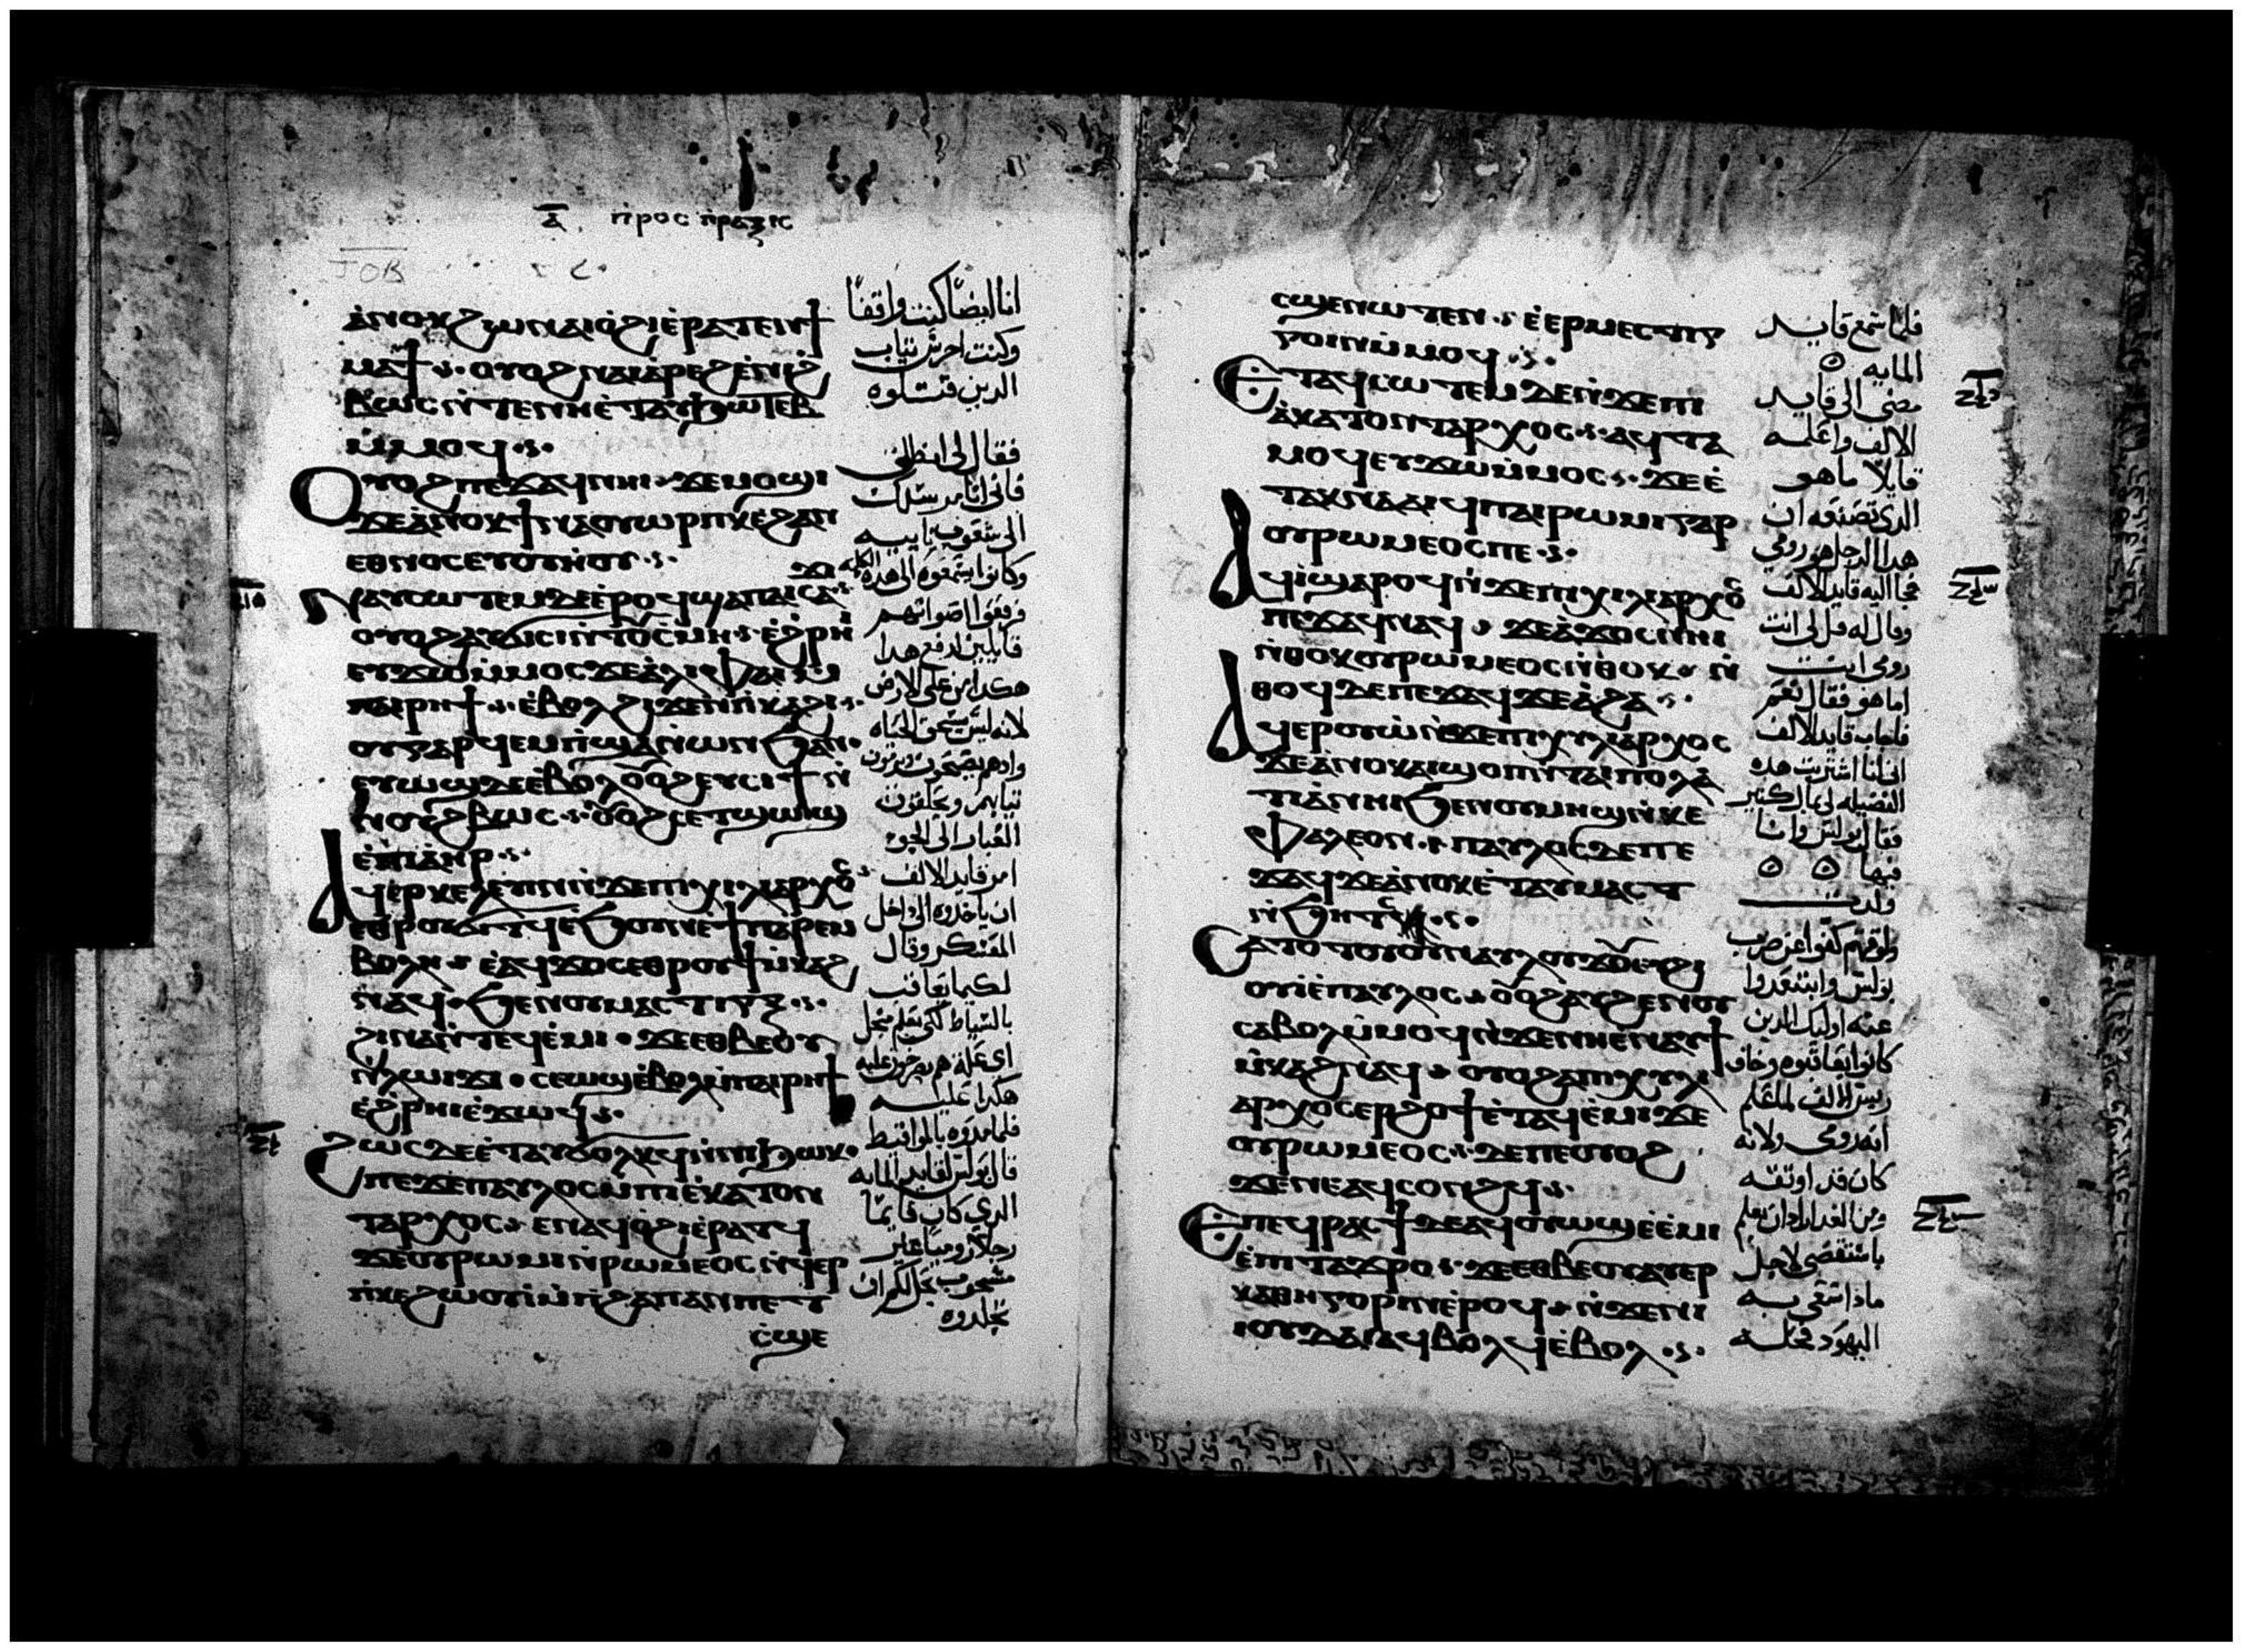 ⲁ̄ ⲡⲣⲟⲥ ⲡⲣⲁⲝⲓⲥ
ⲁⲛⲟⲕ ϩⲱ ⲛⲁⲓⲟϩⲓ ⲉⲣⲁⲧ ⲉⲓϯ
ⲙⲁϯ ⲟⲩⲟϩ ⲛⲁⲓⲁⲣⲉϩ ⲉⲛⲓϩ
ⲃⲱⲥ ⲛⲧⲉ ⲛⲏ ⲉⲧⲁⲩϧⲱⲧⲉⲃ
ⲙⲙⲟϥ
ⲟⲩⲟϩ ⲡⲉϫⲁϥ ⲛⲏⲓ ϫⲉ ⲙⲟϣⲓ
ϫⲉ ⲁⲛⲟⲕ ϯⲛⲁⲟⲩⲟⲣⲡⲕ ⲉϩⲁⲛ
ⲉⲑⲛⲟⲥ ⲉⲩⲟⲩⲏⲟⲩ
ⲛⲁⲩⲥⲱⲧⲉⲙ ⲇⲉ ⲉⲣⲟϥ ϣⲁ ⲡⲁⲓⲥⲁ
ⲟⲩⲟϩ ⲁⲩϭⲓⲥⲓ ⲛⲧⲟⲩⲥⲙⲏ ⲉϩⲣⲏⲓ
ⲉⲩϫⲱ ⲙⲙⲟⲥ ϫⲉ ⲁⲗⲓ ⲫⲁⲓ ⲙ
ⲡⲁⲓⲣⲏϯ ⲉⲃⲟⲗ ϩⲓϫⲉⲛ ⲡⲕⲁϩⲓ
ⲟⲩ ⲅⲁⲣ ϥⲉⲙⲡϣⲁ ⲛⲱⲛϧ ⲁⲛ
ⲉⲩⲱϣ ⲇⲉ ⲉⲃⲟⲗ ⲟⲩⲟϩ ⲉⲩⲥⲓϯ ⲛ
ⲛⲟⲩϩⲃⲱⲥ ⲟⲩⲟϩ
ⲉⲡⲓⲁⲏⲣ
ⲁϥⲉⲣⲕⲉⲗⲉⲩⲓⲛ ⲛϫⲉ ⲡⲓⲭⲓⲗⲓⲁⲣⲭⲟⲥ
ⲉⲑⲣⲟⲩⲟⲗϥ ⲉϧⲟⲩⲛ ⲉϯⲡⲁⲣⲉⲙ
ⲃⲟⲗⲏ ⲉⲁϥϫⲟⲥ ⲉⲑⲣⲟⲩϯⲙⲕⲁϩ
ⲛⲁϥ ϧⲉⲛ ⲟⲩⲙⲁⲥⲧⲓⲅⲝ
ϩⲓⲛⲁ ⲛⲧⲉϥⲉⲙⲓ ϫⲉ ⲉⲑⲃⲉ ⲟⲩ
ⲛⲗⲱⲓϫⲓ ⲥⲉⲱϣ ⲉⲃⲟⲗ ⲙⲡⲁⲓⲣⲏϯ
ⲉϩⲣⲏⲓ ⲉϫⲱϥ
ϩⲱⲥ ⲇⲉ ⲉⲧⲁⲩⲥⲟⲗⲕϥ ϧⲱⲕ
ⲡⲉϫⲉ ⲡⲁⲩⲗⲟⲥ ⲙⲡⲓⲉⲕⲁⲧⲟⲛ
ⲧⲁⲣⲭⲟⲥ ⲉⲛⲁϥⲟϩⲓ ⲉⲣⲁⲧϥ
ϫⲉ ⲟⲩⲣⲱⲙⲓ ⲛⲣⲱⲙⲉⲟⲥ ⲛϥⲉⲣ
ⲛⲕⲉϩⲱⲟⲩⲓ ⲙⲡϩⲁⲡ ⲁⲛ ⲡⲉⲧ
ⲥϣⲉ
انا ايضا كنت واقفا
وكنت احرس ثياب
الدين قتلوه
فقال لي انطلق
فاني انا مرسلك
الى شعوب نايية
وكانوا يسمعوه الى هده الكلمه
فرفعوا اصواتهم
قايلين ارفع هدا
هكدا من على الارض
لانه ليس يستحق الحياه
واد هم يصيحون ويرمون
ثيابهم ويحلقون
الغبار الى الجو
امر قايد الالف
ان ياخدوه الى داخل
المعسكر وقال
لكيما يعاقب
بالسياط لكي يعلم من اجل
اي علة هم يصرخون عليه
هكدا عليه
فلما مدوه
قال بولس لقايد المايه
الدي كان قايما
رجلا روميا غير
مشجوب يحل لكم ان
تجلدوه
ⲥϣⲉ ⲛⲱⲧⲉⲛ ⲉⲉⲣⲙⲉⲥⲧⲓⲅ
ⲅⲟⲓⲛ ⲙⲙⲟϥ
ⲉⲧⲁϥⲥⲱⲧⲉⲙ ⲇⲉ ⲛϫⲉ ⲡⲓ
ⲉⲕⲁⲧⲟⲛⲧⲁⲣⲭⲟⲥ ⲁϥⲧⲁ
ⲙⲟϥ ⲉϥϫⲱ ⲙⲙⲟⲥ ϫⲉ ⲉ
ⲧⲁⲕⲛⲁⲁⲓϥ ⲡⲁⲓⲣⲱⲙⲓ ⲅⲁⲣ
ⲟⲩⲣⲱⲙⲉⲟⲥ ⲡⲉ
ⲁϥⲓ ϣⲁⲣⲟϥ ⲛϫⲉ ⲡⲓⲭⲓⲗⲓⲁⲣⲭⲟⲥ
ⲡⲉϫⲁϥ ⲛⲁϥ ϫⲉ ⲁϫⲟⲥ ⲛⲏⲓ
ⲛⲑⲟⲕ ⲟⲩⲣⲱⲙⲉⲟⲥ ⲛⲑⲟⲕ ⲛ
ⲑⲟϥ ⲇⲉ ⲡⲉϫⲁϥ ϫⲉ ⲁϩⲁ
ⲁϥⲉⲣⲟⲩⲱ ⲛϫⲉ ⲡⲓⲭⲩⲗⲓⲁⲣⲭⲟⲥ
ϫⲉ ⲁⲛⲟⲕ ⲁⲓϣⲟⲡ ⲛⲧⲁⲓⲡⲟⲗⲏ
ⲧⲓⲁ ⲛⲏⲓ ϧⲉⲛ ⲟⲩⲙⲏϣ ⲛⲕⲉ
ⲫⲁⲗⲉⲟⲛ ⲡⲁⲩⲗⲟⲥ ⲇⲉ ⲡⲉ
ϫⲁϥ ϫⲉ ⲁⲛⲟⲕ ⲉⲧⲁⲩⲙⲁⲥⲧ
ⲛϧⲏⲧⲥ
ⲥⲁⲧⲟⲧⲟⲩ ⲟⲩⲛ ⲁⲩⲟⲩⲱ ⲉⲩϩⲓ
ⲟⲩⲓ ⲉⲡⲁⲩⲗⲟⲥ ⲟⲩⲟϩ ⲁⲩϩⲉⲛⲟⲩ
ⲥⲁⲃⲟⲗ ⲙⲙⲟϥ ⲛϫⲉ ⲛⲏ ⲉⲛⲁⲩϯ
ⲙⲕⲁϩ ⲛⲁϥ ⲟⲩⲟϩ ⲁ ⲡⲓⲭⲩⲗⲓ
ⲁⲣⲭⲟⲥ ⲉⲣϩⲟϯ ⲉⲧⲁϥⲉⲙⲓ ϫⲉ
ⲟⲩⲣⲱⲙⲉⲟⲥ ⲡⲉ ⲟⲩⲟϩ
ϫⲉ ⲛⲉ ⲁϥⲥⲟⲛϩϥ
ⲉⲡⲉϥⲣⲁⲥϯ ⲇⲉ ⲁϥⲟⲩⲱϣ ⲉⲉⲙⲓ
ⲉⲡⲓⲧⲁϫⲣⲟ ϫⲉ ⲉⲑⲃⲉ ⲟⲩ ⲁⲩⲉⲣ
ⲕⲁⲑⲏⲅⲟⲣⲓⲛ ⲉⲣⲟϥ ⲛϫⲉ ⲛⲓ
ⲓⲟⲩⲇⲁⲓ ⲁϥⲃⲟⲗϥ ⲉⲃⲟⲗ
فلما سمع قايد
المايه
مضى الى قايد
الالف واعلمه
قايلا ما هو
الدي تصنعه ان
هدا الرجل هو رومي
فجا اليه قايد الالف
وقال له قل لي انت
رومي انت
اما هو فقال نعم
فاجاب قايد الالف
اني انا اشتريت هده
الفضيله لي بمال كثير
فقال بولس وانا
فيها
ولدت
ولوقتهم كفوا عن ضرب
بولس وابتعدوا
عنه اوليك الدين
كانوا يعاقبوه وخاف
ريس الالف لما علم
انه رومي ولانه
كان قد اوثقه
ومن الغد اراد ان يعلم
باستقصى لاجل
مادا سعى به
اليهود فحله